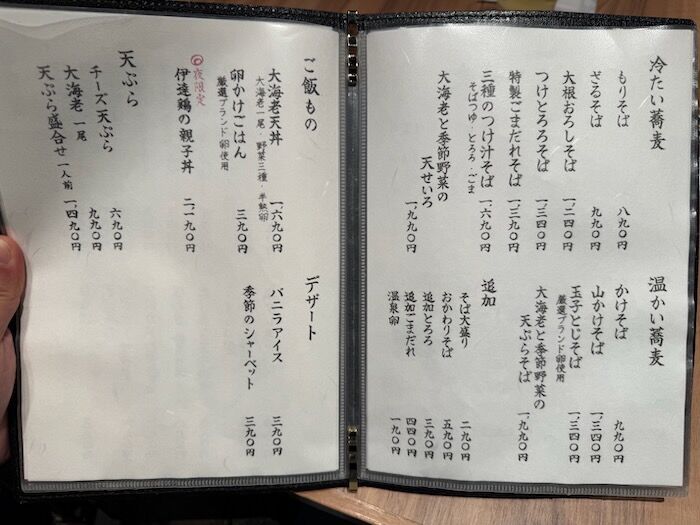 冷たい蕎麦
もりそば 八九〇円
ざるそば 九九〇円
大根おろしそば 一、二四〇円
つけとろろそば 一、三四〇円
特製ごまだれそば 一、三九〇円
三種のつけ汁そば 一、六九〇円
そばつゆ・とろろ・ごま
大海老と季節野菜の
天せいろ 一、九九〇円
温かい蕎麦
かけそば 九九〇円
山かけそば 一、三四〇円
玉子とじそば 一、三四〇円
厳選ブランド卵使用
大海老と季節野菜の
天ぷらそば 一、九九〇円
追加
そば大盛り 二九〇円
おかわりそば 五九〇円
追加とろろ 三九〇円
追加ごまだれ 四四〇円
温泉卵 一九〇円
ご飯もの
大海老天丼 一、六九〇円
大海老一尾・野菜三種・半熟卵
卵かけごはん 三九〇円
厳選ブランド卵使用
◎夜限定
伊達鶏の親子丼 二、一九〇円
天ぷら
チーズ天ぷら 六九〇円
大海老 一尾 九九〇円
天ぷら盛合せ 一人前 一、四九〇円
デザート
バニラアイス 三九〇円
季節のシャーベット 三九〇円